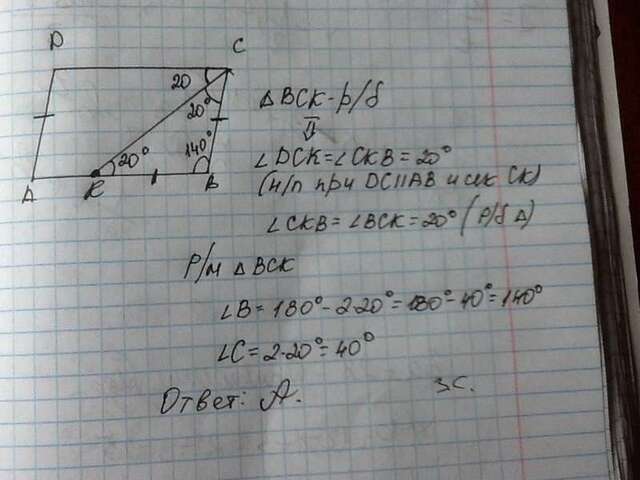 D C
20
20°
140°
20°
A K B
△BCK - р/б
⇓
∠DCK = ∠CKB = 20°
(н/л при DC||AB и сек CK)
∠CKB = ∠BCK = 20° (р/б △)
Р/м △BCK
∠B = 180° - 2·20° = 180° - 40° = 140°
∠C = 2·20° = 40°
Ответ: А.